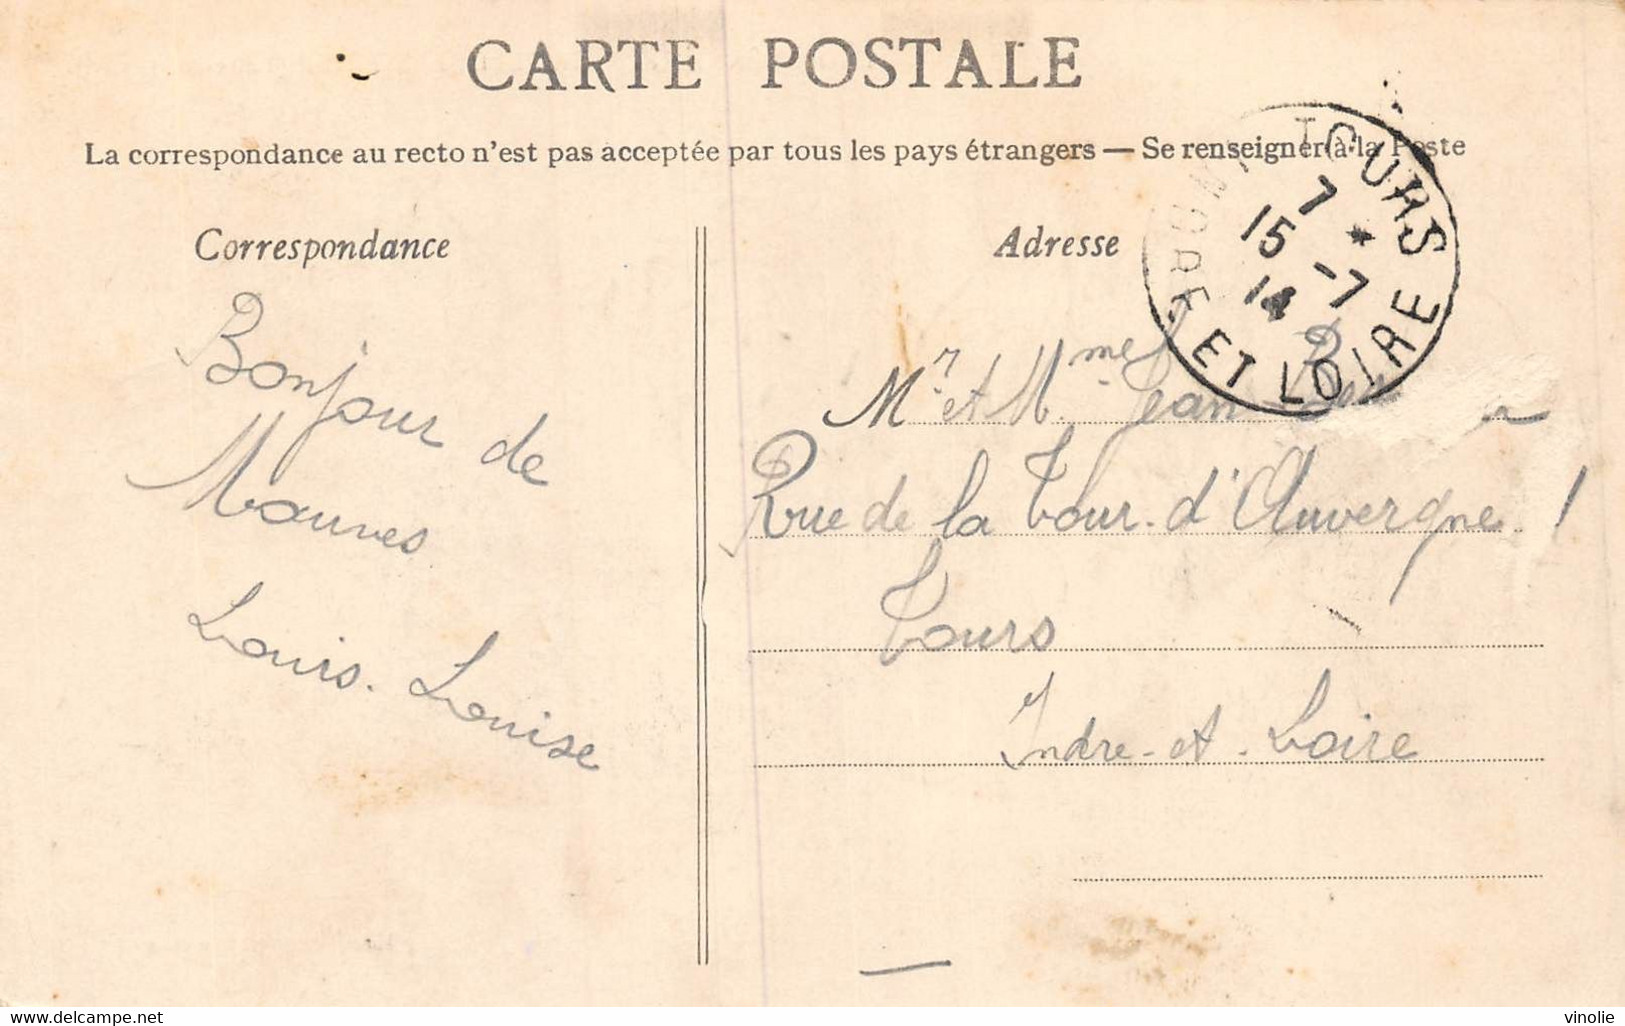 CARTE POSTALE
La correspondance au recto n'est pas acceptée par tous les pays étrangers — Se renseigner à la Poste
Correspondance
Bonjour de
Mauves
Louis. Louise
Adresse
TOURS
7
15 -7
14
ET LOIRE
Mr. et Mme Jean
Rue de la Tour. d'Auvergne
Tours
Indre-et-Loire
www.delcampe.net
vinolie